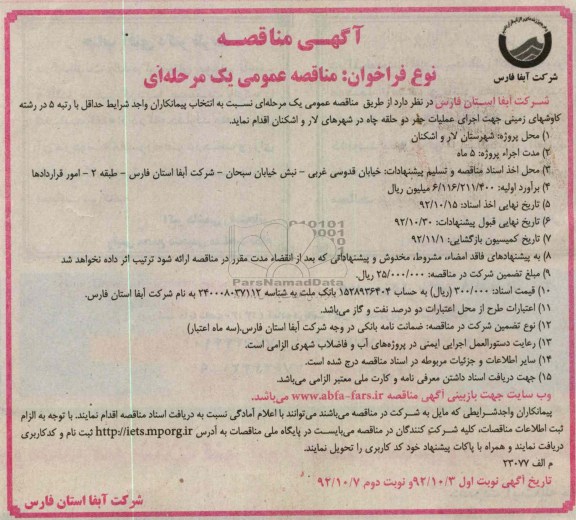 آگهی مناقصه
نوع فراخوان: مناقصه عمومی یک مرحله‌ای
شرکت آبفا فارس
شرکت آبفا استان فارس در نظر دارد از طریق مناقصه عمومی یک مرحله‌ای نسبت به انتخاب پیمانکاران واجد شرایط حداقل با رتبه ۵ در رشته
کاوشهای زمینی جهت اجرای عملیات حفر دو حلقه چاه در شهرهای لار و اشکنان اقدام نماید.
۱) محل پروژه: شهرستان لار و اشکنان
۲) مدت اجراء پروژه: ۵ ماه
۳) محل اخذ اسناد مناقصه و تسلیم پیشنهادات: خیابان قدوسی غربی - نبش خیابان سبحان - شرکت آبفا استان فارس - طبقه ۲ - امور قراردادها
۴) برآورد اولیه: ۶/۱۱۶/۲۱۱/۴۰۰ میلیون ریال
۵) تاریخ نهایی اخذ اسناد: ۹۲/۱۰/۱۵
۶) تاریخ نهایی قبول پیشنهادات: ۹۲/۱۰/۳۰
۷) تاریخ کمیسیون بازگشایی: ۹۲/۱۱/۱
۸) به پیشنهادهای فاقد امضاء، مشروط، مخدوش و پیشنهاداتی که بعد از انقضاء مدت مقرر در مناقصه ارائه شود ترتیب اثر داده نخواهد شد
۹) مبلغ تضمین شرکت در مناقصه: ۲۵/۰۰۰/۰۰۰ ریال.
۱۰) قیمت اسناد: ۳۰۰/۰۰۰ (ریال) به حساب ۱۵۲۸۹۳۶۴۰۴ بانک ملت به شناسه ۳۴۰۰۰۸۰۳۷۱۱۲ به نام شرکت آبفا استان فارس.
۱۱) اعتبارات طرح از محل اعتبارات دو درصد نفت و گاز می‌باشد.
۱۲) نوع تضمین شرکت در مناقصه: ضمانت نامه بانکی در وجه شرکت آبفا استان فارس.(سه ماه اعتبار)
۱۳) رعایت دستورالعمل اجرایی ایمنی در پروژه‌های آب و فاضلاب شهری الزامی است.
۱۴) سایر اطلاعات و جزئیات مربوطه در اسناد مناقصه درج شده است.
۱۵) جهت دریافت اسناد داشتن معرفی نامه و کارت ملی معتبر الزامی می‌باشد.
وب سایت جهت بازبینی آگهی مناقصه www.abfa-fars.ir می‌باشد.
پیمانکاران واجدشرایطی که مایل به شرکت در مناقصه می‌باشند می‌توانند با اعلام آمادگی نسبت به دریافت اسناد مناقصه اقدام نمایند. با توجه به الزام
ثبت اطلاعات مناقصات، کلیه شرکت کنندگان در مناقصه می‌بایست در پایگاه ملی مناقصات به آدرس http://iets.mporg.ir ثبت نام و کدکاربری
دریافت نمایند و همراه با پاکات پیشنهاد خود کد کاربری را تحویل نمایند.
م الف ۲۳۰۷۷
تاریخ آگهی نوبت اول ۹۲/۱۰/۳ و نوبت دوم ۹۲/۱۰/۷
شرکت آبفا استان فارس
ParsNamadData